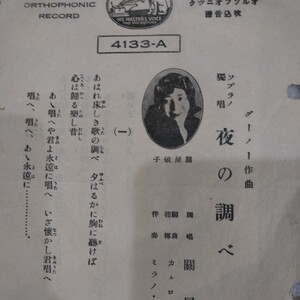 ORTHOPHONIC
RECORD
"HIS MASTER'S VOICE"
オルソフオニツク
吹込音譜
4133-A
グーノー作曲
ソプラノ
獨唱
夜の調べ
關屋敏子
獨唱 關屋
作曲
伴奏 ミラノ・
(一)
あはれ床しき歌の調べ 夕はるかに胸に聽けば
心は歸る樂し昔
あゝ唱へや君よ永遠に唱へ いざ懷かし君唱へ
唱へ、唱へ、あゝ永遠に…………